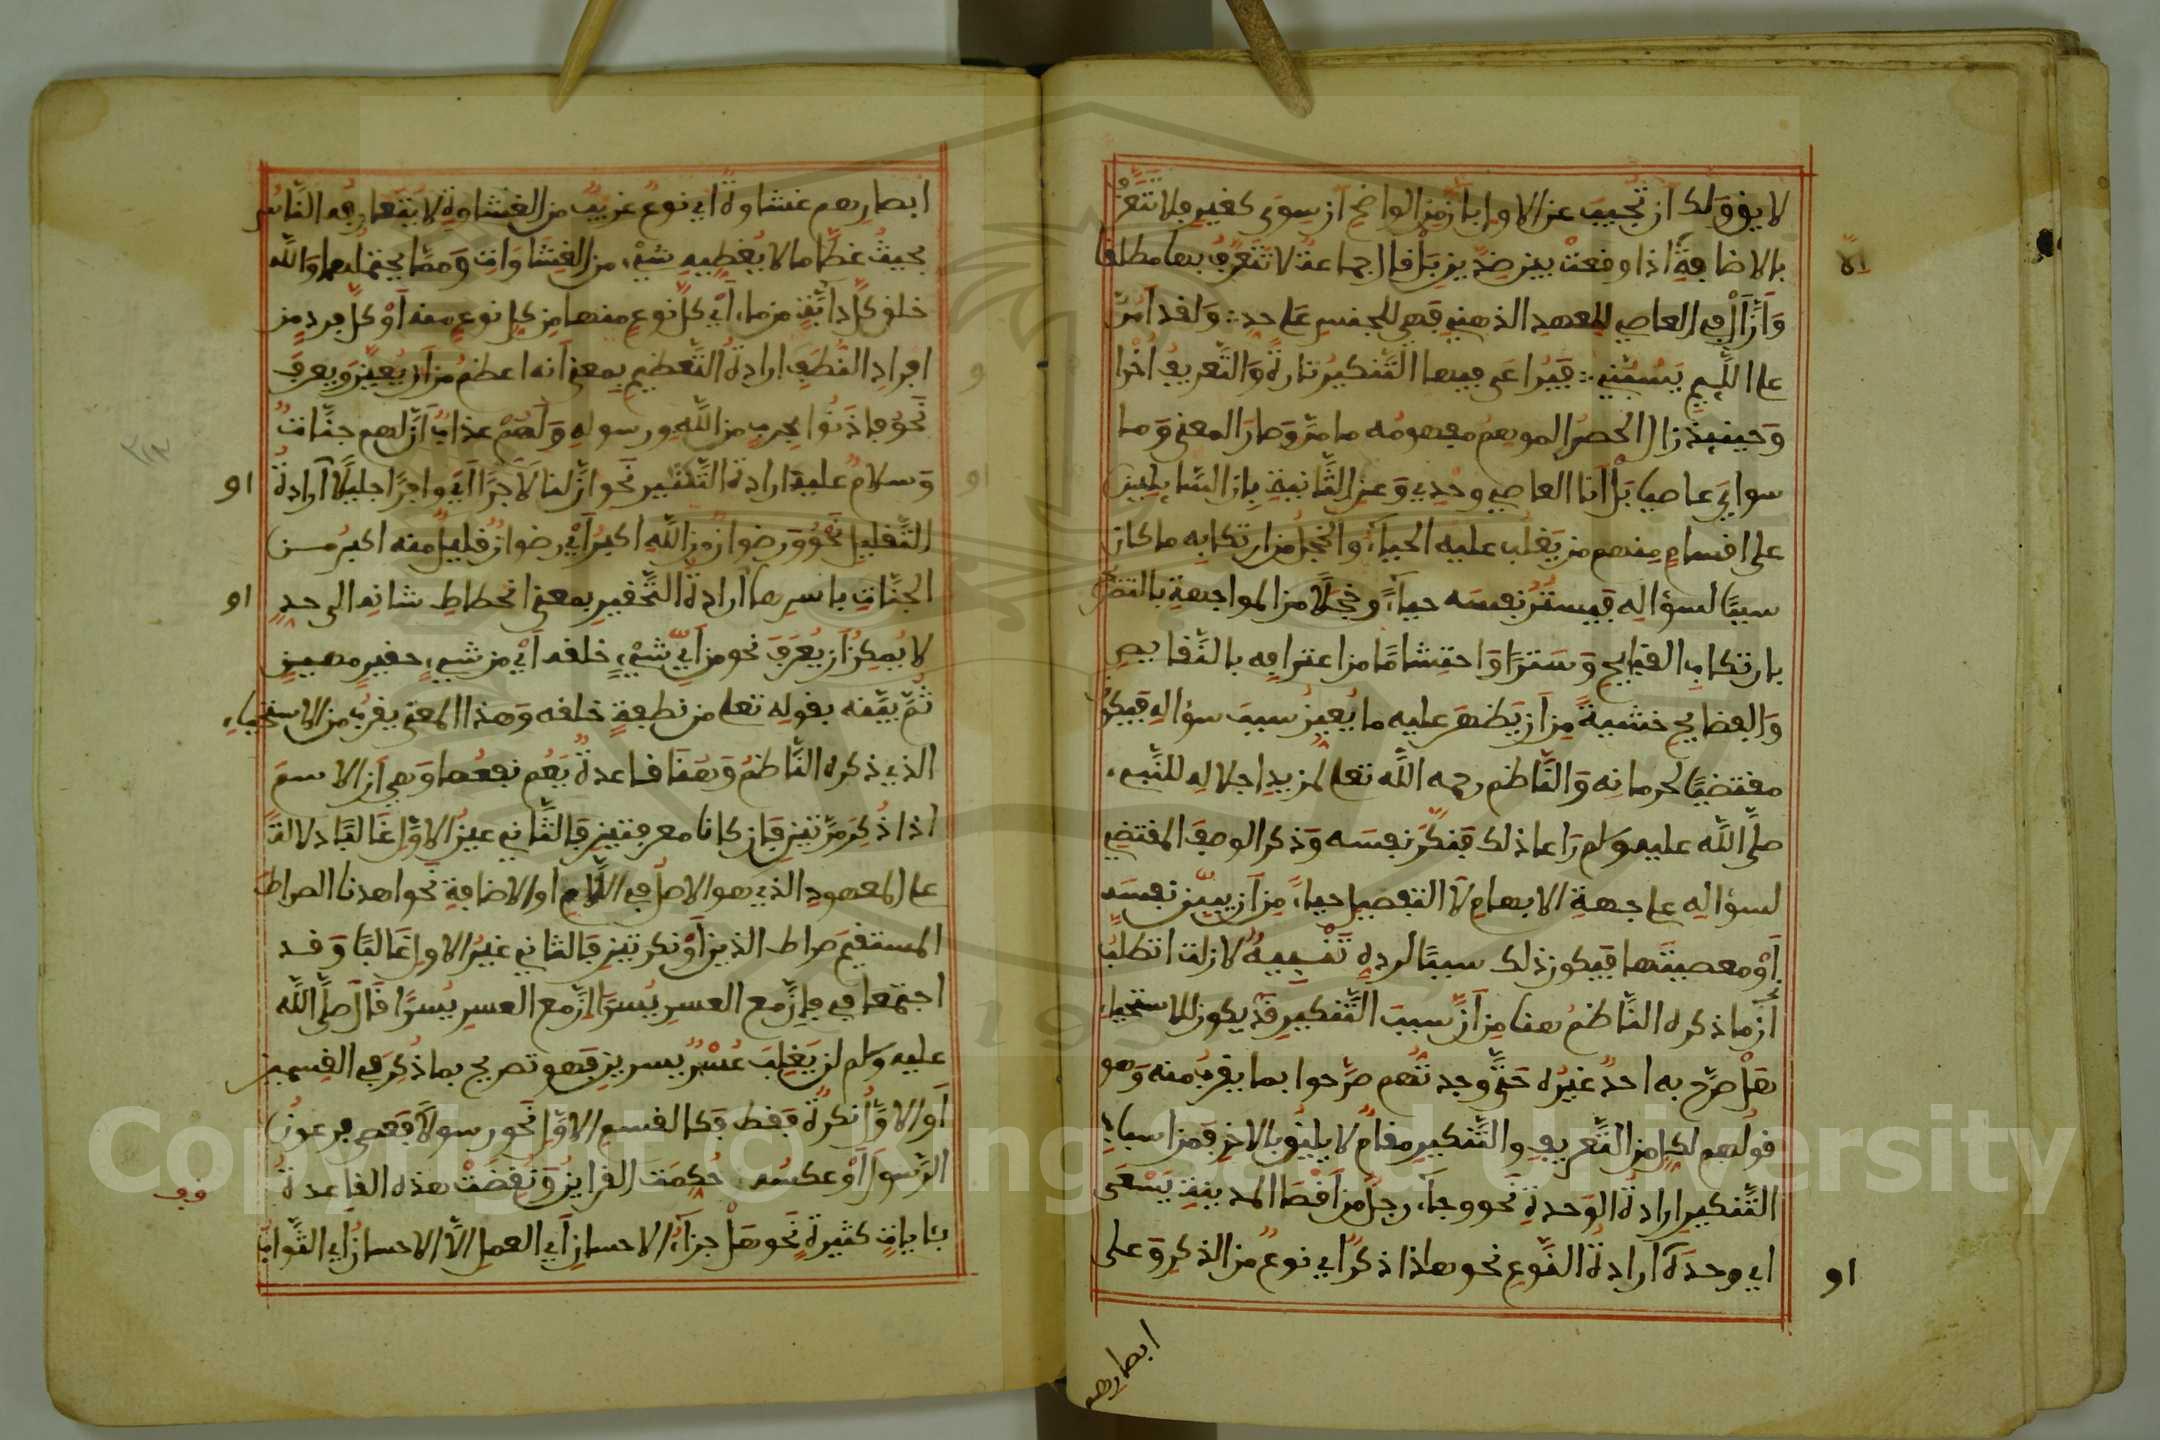 لا يفوقك ان تجيب عن الاول بان من الواضح ان سوى كغير فلا تتعرف
بالاضافة اذا وقعت بين ضدين بل قال جماعة لا تتعرف بها مطلقا
الا
وَانّ ال في العاصي للعهد الذهني فهي للجنس على حد ولقد امرّ
على اللئيم يسبني فيراعى فيها التنكير تارة والتعريف اخرا
وحينئذ زال الحصر الموهم مفهومه ما مرّ وصار المعنى وما
سواي عاصيا بل انا العاصي وحدي وعن الثانية بان السائلين
على اقسام منهم من يغلب عليه الحياء والخجل من ارتكابه ما كان
سببا لسؤاله فيستر نفسه حياء وخجلا من المواجهة بالتصريح
بارتكاب القبايح وسترا واحتشاما من اعترافه بالنقايص
والفضايح خشية من ان يظهر عليه ما يعين سبب سؤاله فيكون
مقتضيا لحرمانه والناظم رحمه الله تعلى لمزيد اجلاله للنبي
صلى الله عليه وسلم راعا ذلك فنكّر نفسه وذكر الوصف المقتضي
لسؤاله على جهة الابهام لا التفصيل حياء من ان يبين نفسه
او معصيتها فيكون ذلك سببا لرده تنبيه لا زلت اتطلب
ان ما ذكره الناظم هنا من ان سبب التنكير قد يكون للاستحياء
هل صرح به احد غيره حتى وجدتهم صرحوا بما يقرب منه وهو
قولهم لكل من التعريف والتنكير مقام لا يليق بالاخر فمن اسباب
التنكير ارادة الوحدة نحو وجاء رجل من اقصا المدينة يسعى
اي وحده او ارادة النوع نحو هاذا ذكر اي نوع من الذكر وعلى
او
ابصارهم
ابصارهم غشاوة اي نوع غريب من الغشاوة لا يتعارفه الناس
بحيث غطّا ما لا يغطيه شيء من الغشاوات ومما يحتملهما والله
خلق كل دابة من ماء اي كل نوع منها من كل نوع منه او كل فرد من
افراد النطف ارادة التعظيم بمعنى انه اعظم من ان يعيّن ويعرف
نحو فاذنوا بحرب من الله ورسوله ولهم عذاب انّ لهم جنات
وسلام عليه ارادة التكثير نحو ان لنا لاجرا اي وافرا جليلا ارادة
او
التقليل نحو ورضوان من الله اكبر اي رضوان قليل منه اكبر من
الجنات باسرها ارادة التحقير بمعنى انحطاط شانه الى حد
او
لا يمكن ان يعرف نحو من اي شيء خلقه اي من شيء حقير مهين
ثم بينه بقوله تعلى من نطفة خلقه وهذا المعنى يقرب من الاستحياء
الذي ذكره الناظم وهنا قاعدة يعم نفعها وهي ان الاسم
اذا ذكر مرتين فان كانا معرفتين فالثاني عين الاول غالبا دلالة
على المعهود الذي هو الاصل في اللام او الاضافة نحو اهدنا الصراط
المستقيم صراط الذين او نكرتين فالثاني غير الاول غالبا وقد
اجتمعا في فان مع العسر يسرا ان مع العسر يسرا قال صلى الله
عليه وسلم لن يغلب عسر يسرين فهو تصريح بما ذكر في القسمين
او الاول نكرة فقط فكالقسم الاول نحو رسولا فعصى فرعون
الرسول او عكسه حكمت القراين ونقضت هذه القاعدة
بئايات كثيرة نحو هل جزاء الاحسان اي العمل الا الاحسان اي الثواب
Copyright © King Saud University
195